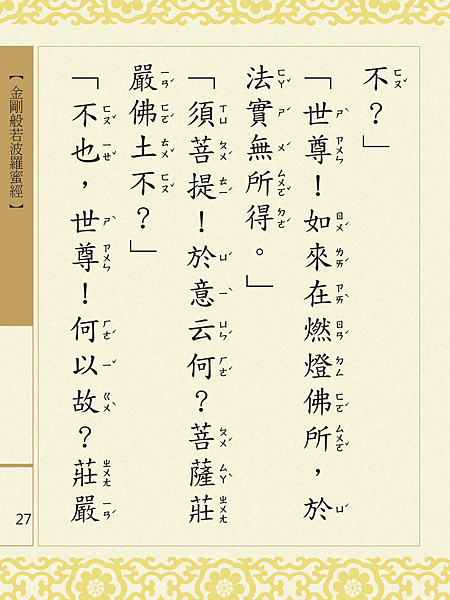 不？」
「世尊！如來在燃燈佛所，於
法實無所得。」
「須菩提！於意云何？菩薩莊
嚴佛土不？」
「不也，世尊！何以故？莊嚴
【金剛般若波羅蜜經】
27